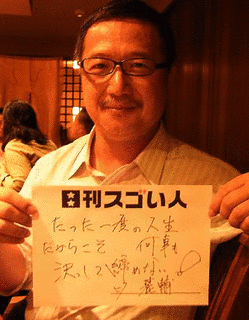 日刊スゴい人
たった一度の人生
だからこそ 何事も
決して諦めない!